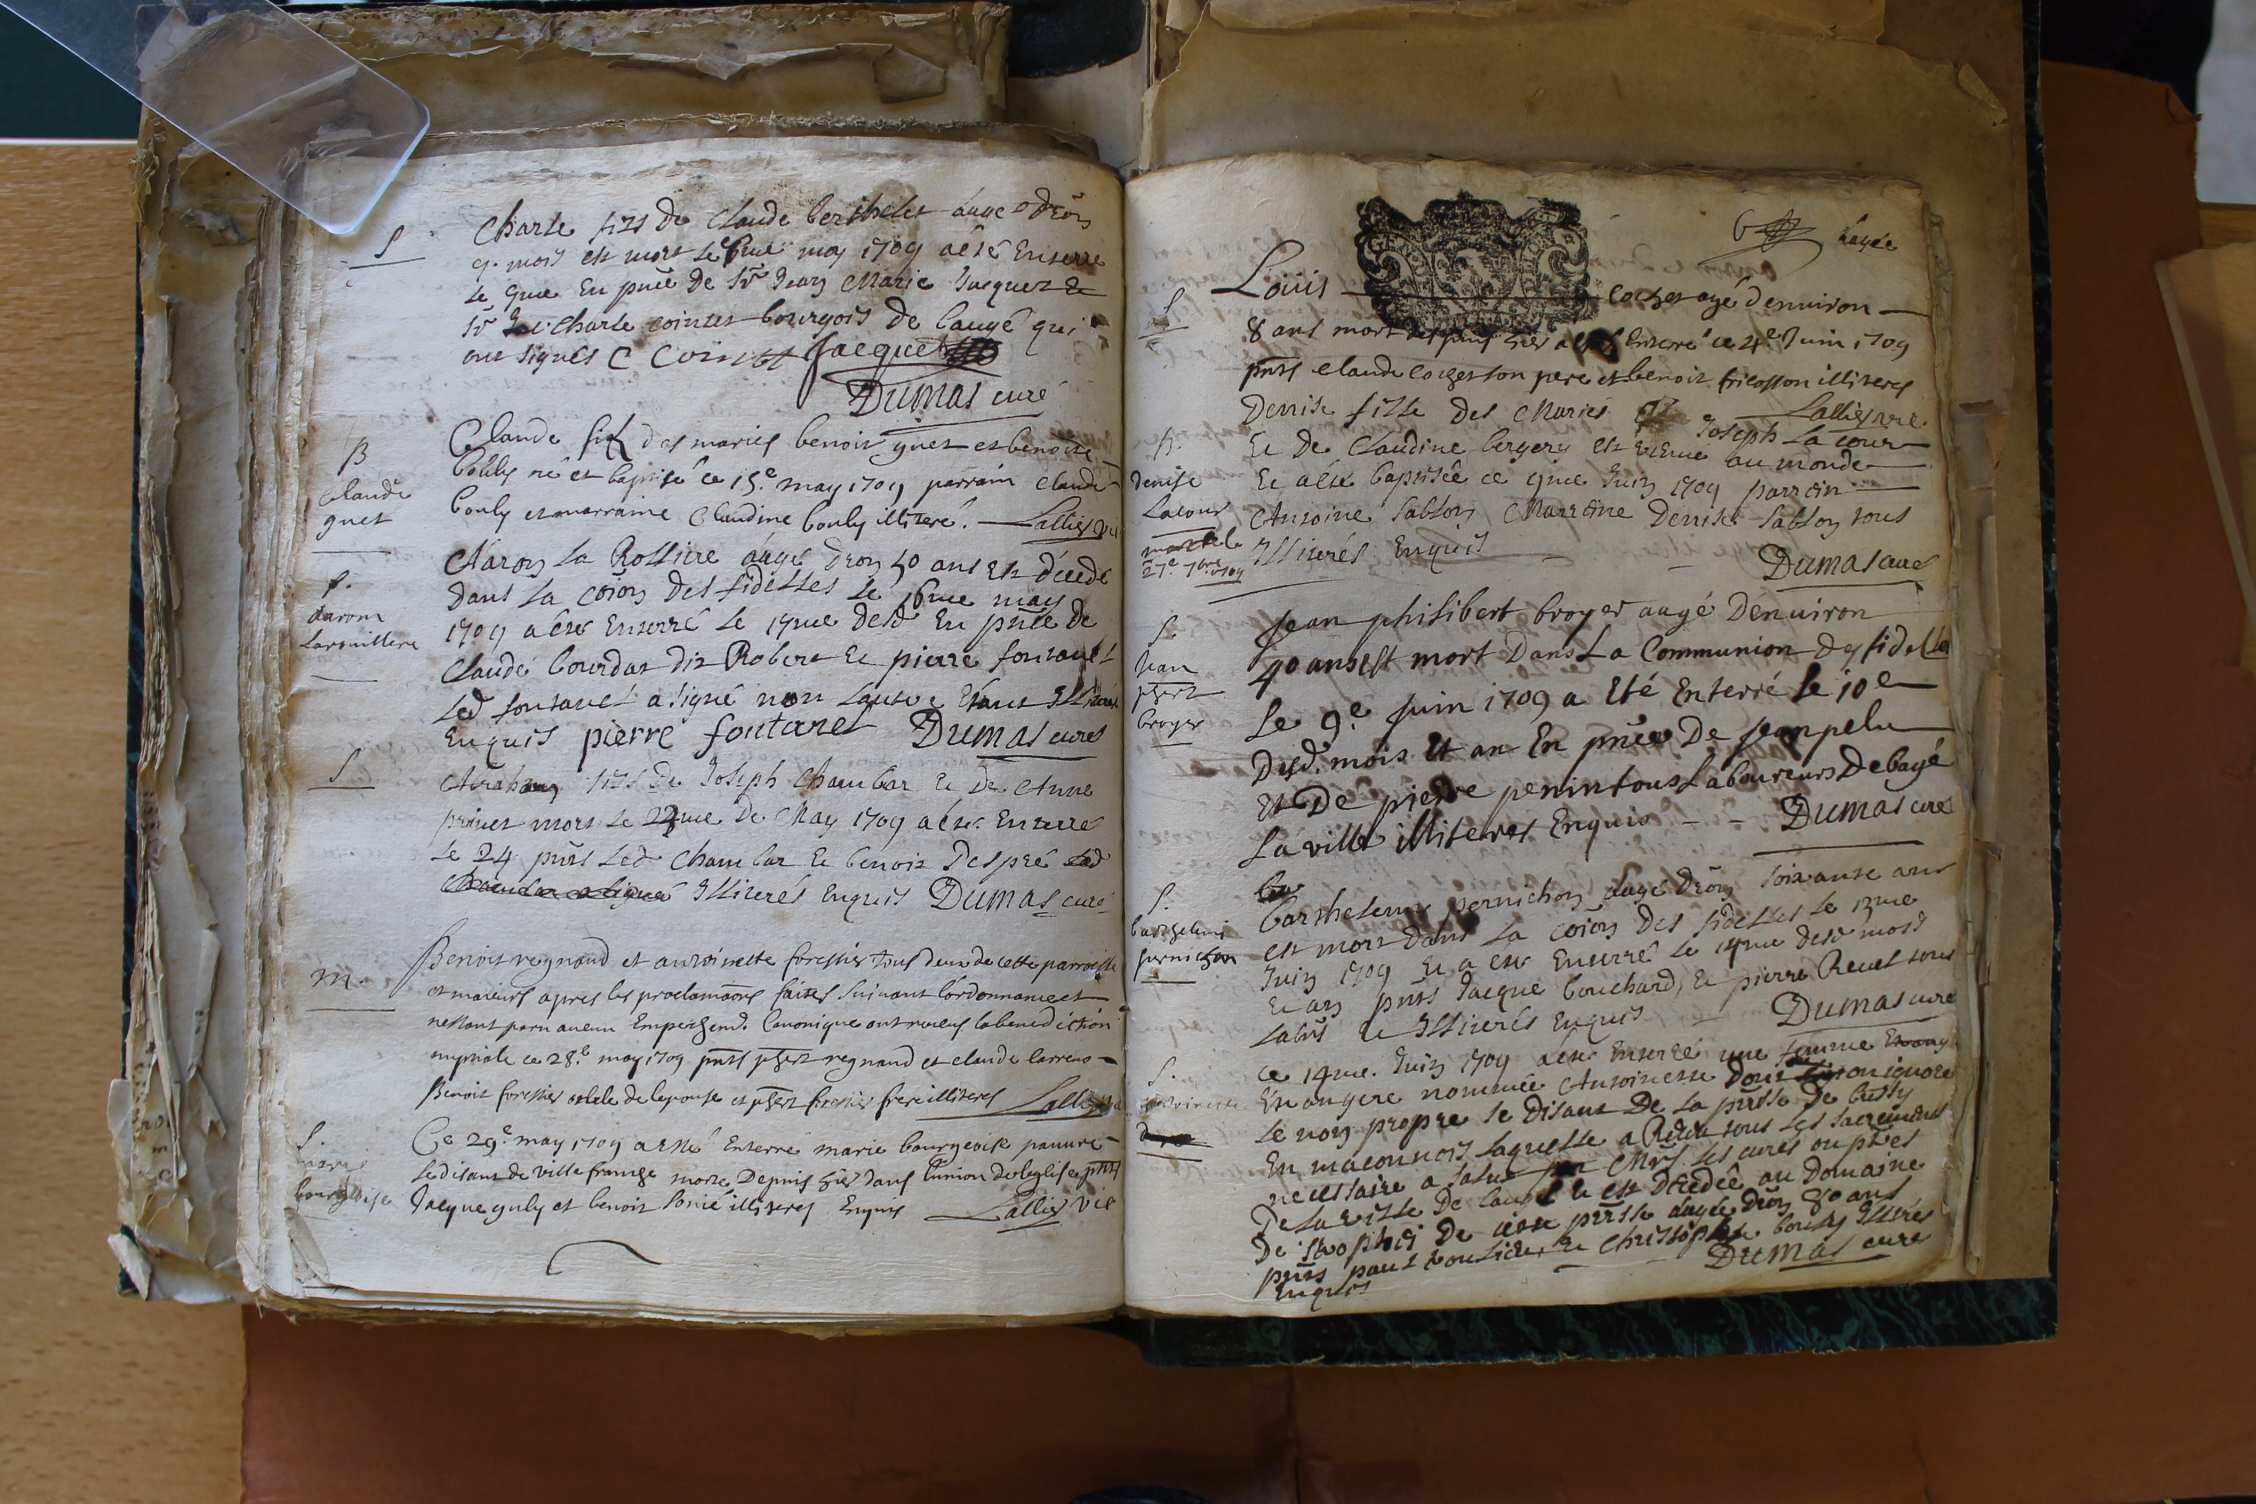 S
Charle fils de Claude berthelet aagé d'eõn
9. mois est mort le 8me may 1709 a été Enterré
le 9me En pñce de Sr Jean Marie Jacquet &
Sr Charle cointet bourgois de baugé qui
ont signés C Cointet Jacquet
Dumas curé
B
Claude
guet
Claude filz des mariés benoit guet et benoite
bouly né et baptisé ce 15.e may 1709 parrain claude
bouly et marraine Claudine bouly illiteré. Lallier vic
S.
aaron
larouillere
Aaron La Rolliere aagé d'eon 50 ans Est décedé
dans la coion des fidelles le 16me may
1709 a été Enterré le 17me desd En pñce de
Claude bourdat dit Robert Et pierre fontanet
led fontanet a signé non lautre Etant Illiteré
Enquis pierre fontanet Dumas curé
S
Abraham fils de Joseph Chambar Et De Anne
mort le 22me De May 1709 a été Enterré
le 24 pñts Led Chambar Et benoit Despré
Illiterés Enquis Dumas curé
m.
Benoit regnaud et antoinette forestier tous deux de cette parroisse
et maieurs apres les proclamãons faites suivant l'ordonnance et
nestant paru aucun Empeschemt. Canonique ont receus la benediction
nuptiale ce 28.e may 1709 pñts phert regnaud et claude
Benoit forestier oncle de lepouse et phert forestier frere illiteres Lallier
S.
marie
bourgeoise
Ce 29.e may 1709 a esté Enterré marie bourgeoise pauvre
se disant de ville franche morte Depuis hier dans l'union de leglise pñts
Jacque guly et benoit illiteres Enquis Lallier vic
6
S
Louis cochet agé d'enuiron
8 ans mort depuis hier a esté Enterré ce 4.e Juin 1709
pñts claude cochet son pere et benoit fricosson illiteres
Lallier
B.
denise
Lacour
morte le
27e 7bre 1709
Denise fille des Mariés Joseph La cour
Et De Claudine bergery est venue au monde
Et a été baptisée ce 9me Juin 1709 parrain
Antoine Sablon Marraine Denise Sablon tous
Illiterés Enquis
Dumas curé
S.
Jean
phert
broyer
Jean philibert broyer aagé Denuiron
40 ans Est mort Dans La Communion des fidelles
Le 9.e Juin 1709 a Eté Enterré le 10e
Dud. mois Et an En pñce De Jean pelu
Et De pierre penin tous Laboureurs De bagé
La ville illiteres Enquis Dumas curé
S.
barthelemi
pernichon
barthelemi pernichon aagé d'eõn soixante ans
est mort dans la coion des fidelles le 13me
Juin 1709 Et a été Enterré le 14me desd mois
Et an pñts Jacque bouchard, Et pierre Revel tous
Labrs Et Illiterés Enquis Dumas curé
S.
antoinette
Ce 14me. Juin 1709 a été Enterré une femme
Etrangere nommée Antoinette dont on ignore
le nom propre se disant De la pñsse de bussy
En maconnois laquelle a Receu tous les sacrements
necessaire a salut par Mrs les curés ou ptres
De la ville De baugé Et est Décedée au Domaine
De De cette pñsse aagée d'eõn 80 ans
pñts paul Et Christophle bouly Illiterés
Enquis
Dumas curé